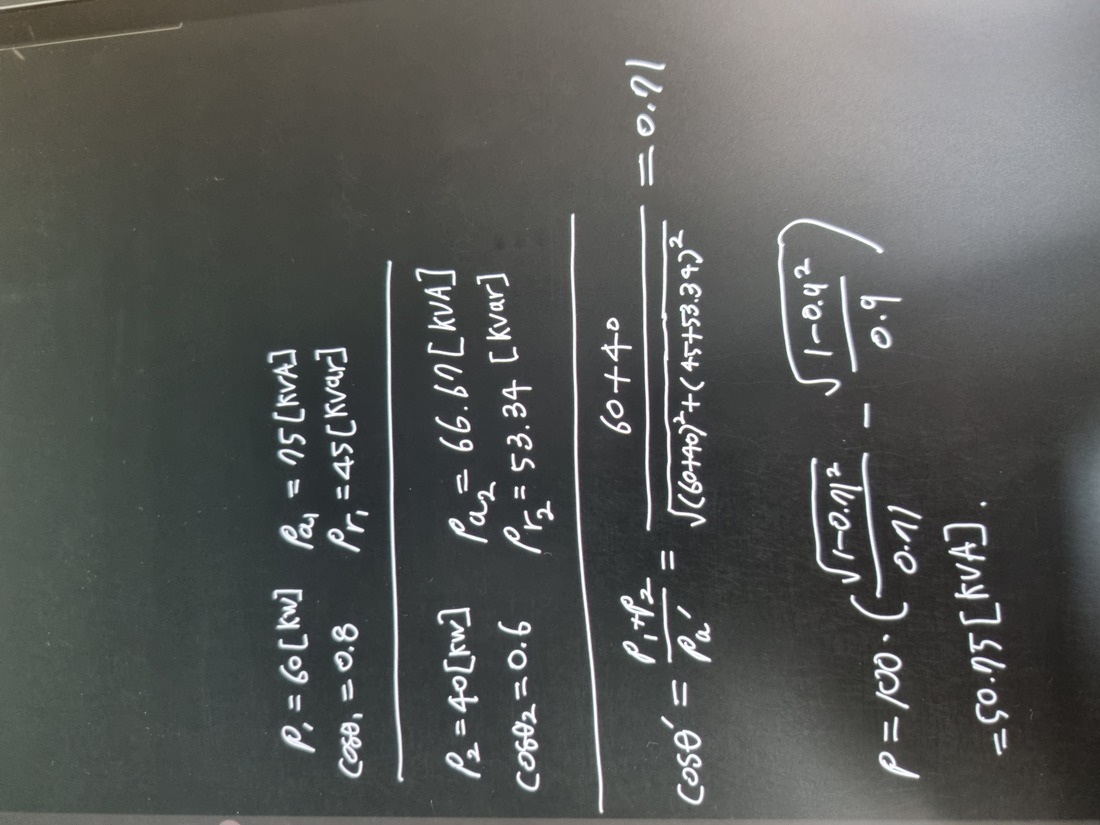 P₁ = 60[kW] Pa₁ = 75[kVA]
cosθ₁ = 0.8 Pr₁ = 45[kvar]
P₂ = 40[kW] Pa₂ = 66.67[kVA]
cosθ₂ = 0.6 Pr₂ = 53.34 [kvar]
cosθ' = (P₁+P₂)/Pa' = (60+40)/√((60+40)²+(45+53.34)²) = 0.71
P = 100·(√(1-0.71²)/0.71 - √(1-0.9²)/0.9)
= 50.75[kVA].